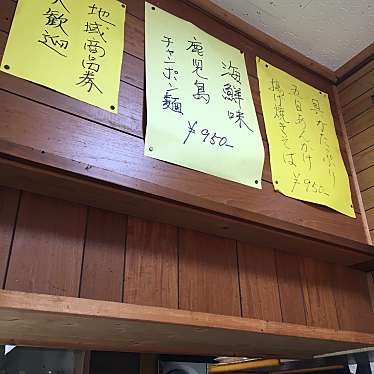 具なたっぷり
五目あんかけ
揚げ焼きそば
¥950-
海鮮味
鹿児島
チャンポン麺
¥950-
地域商品券
大歓迎